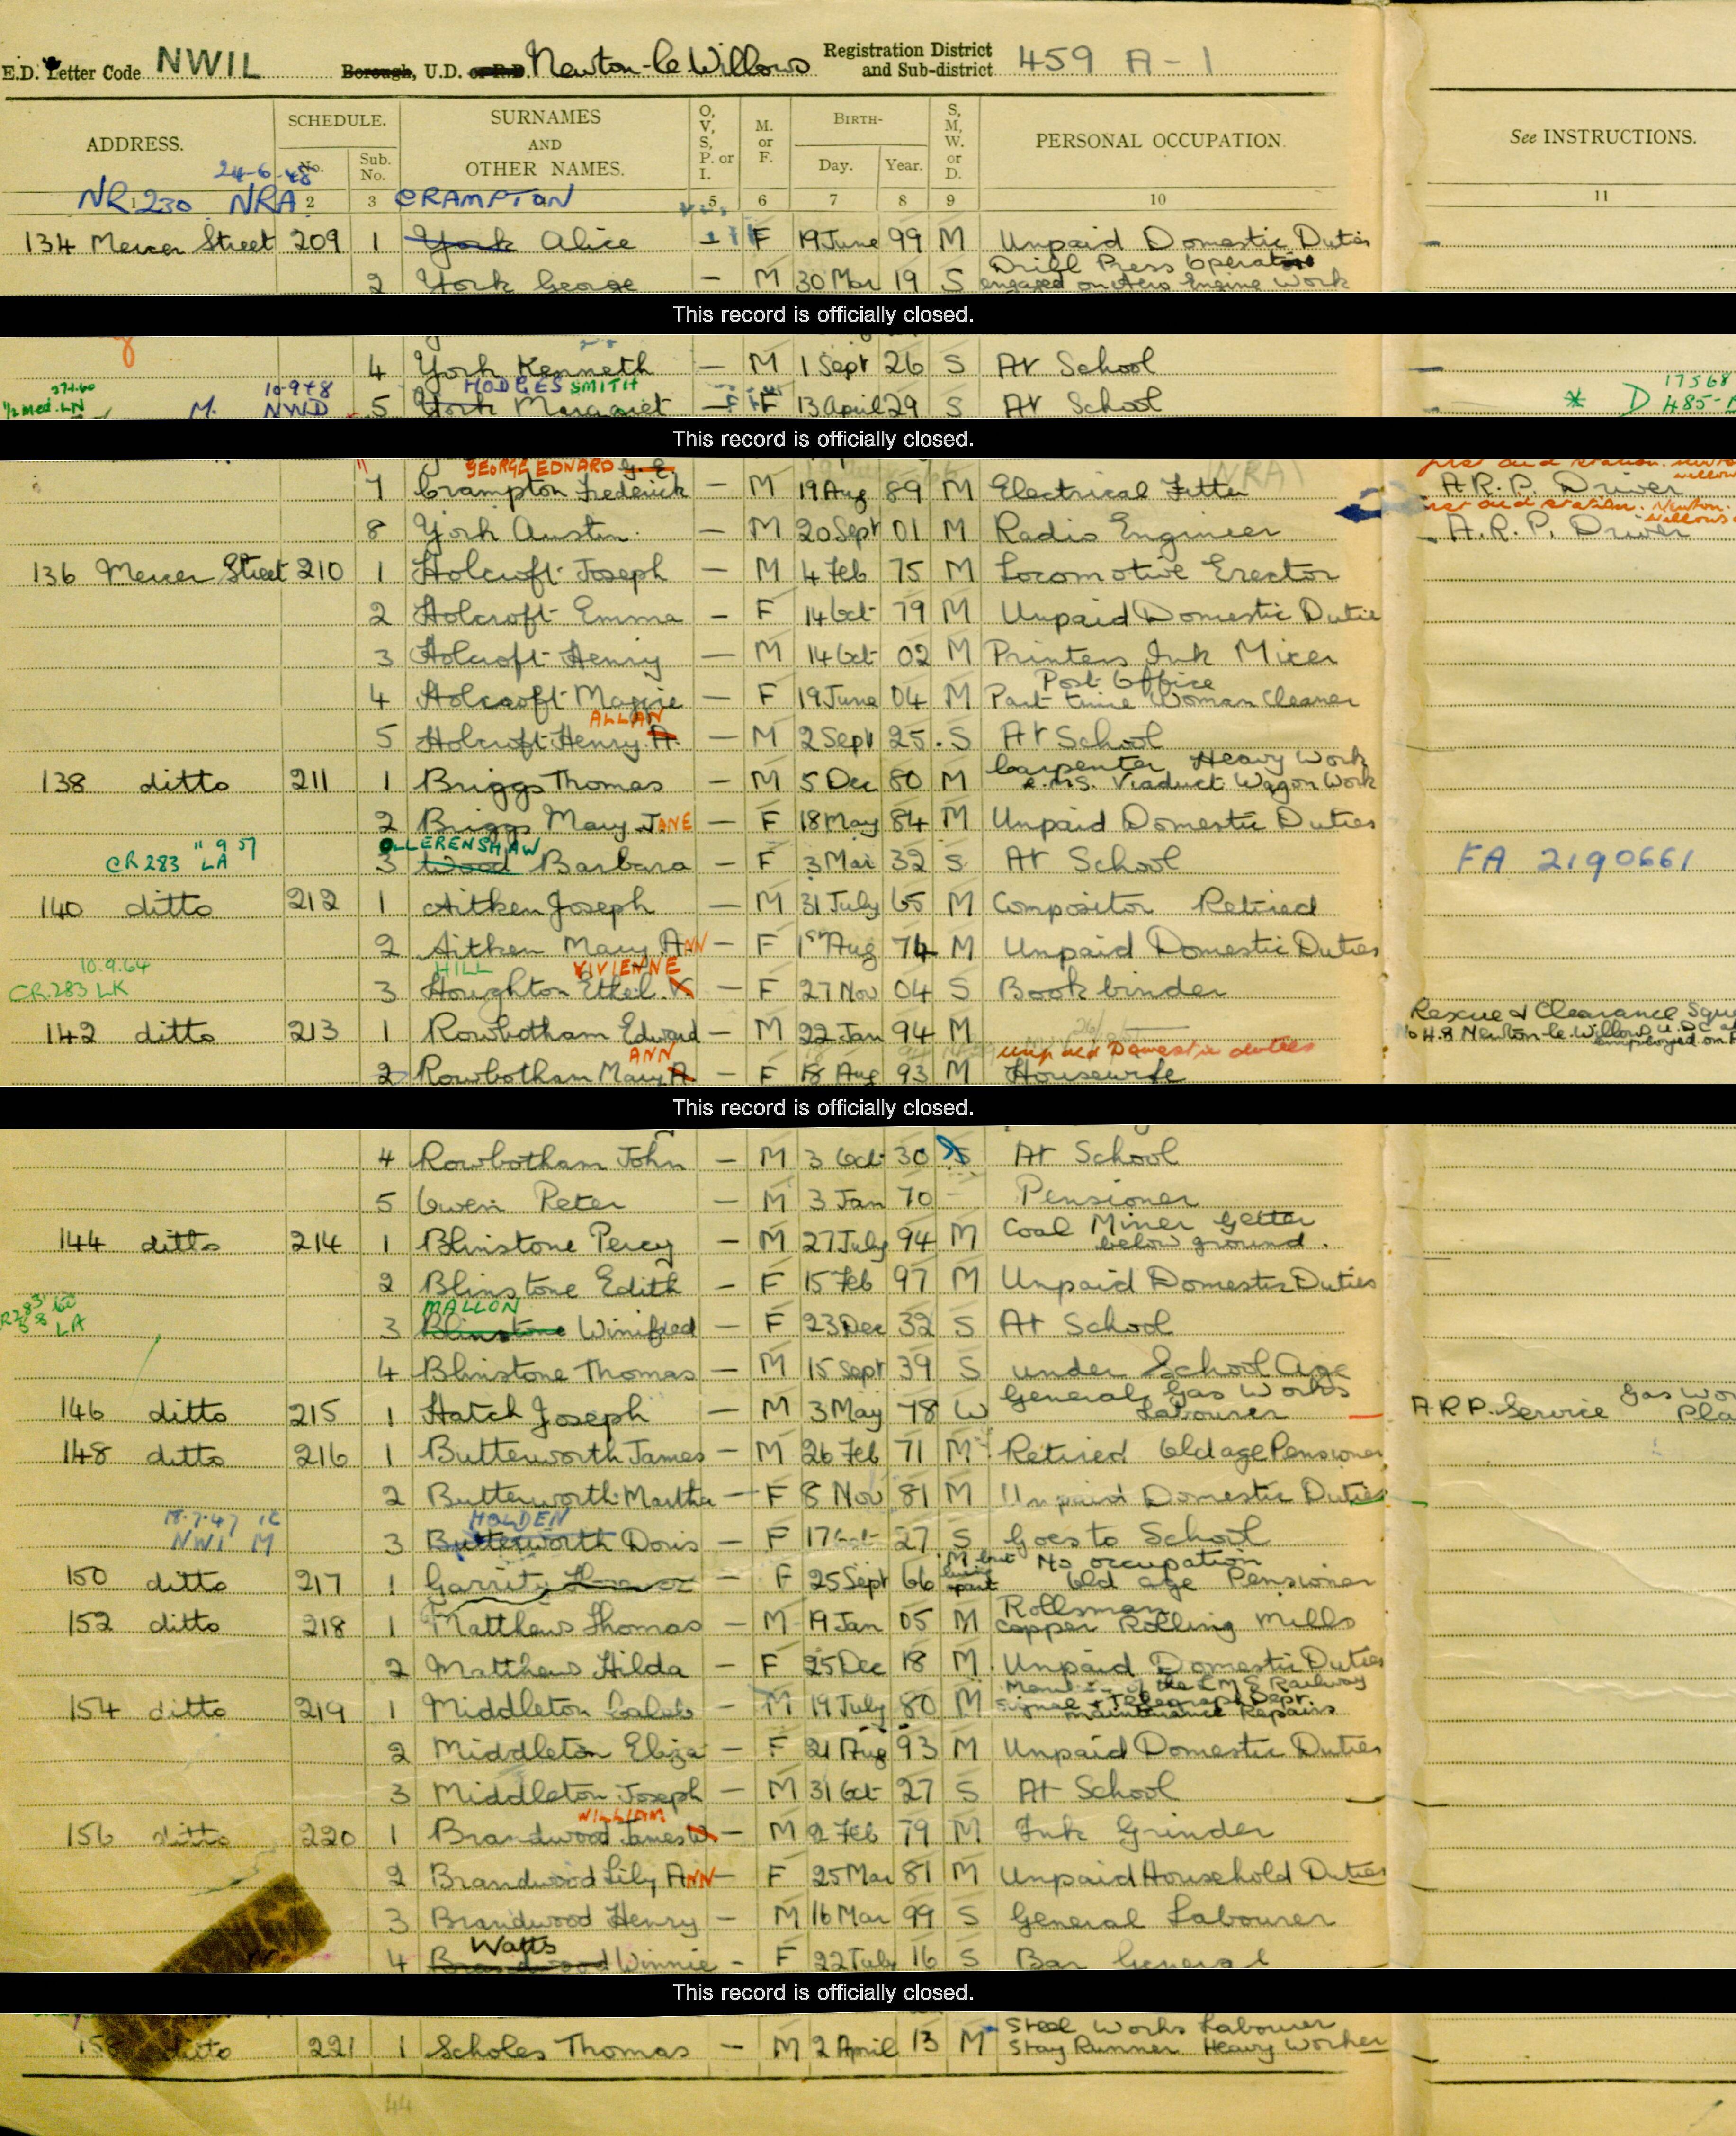 E.D. Letter Code NWIL Borough, U.D. or R.D. Newton-le-Willows Registration District and Sub-district 459 A-1
ADDRESS. SCHEDULE. No. Sub. No. SURNAMES AND OTHER NAMES. O, V, S, P. or I. M. or F. BIRTH- Day. Year. S, M, W. or D. PERSONAL OCCUPATION. See INSTRUCTIONS.
24-6-48
NR 230 NRA CRAMPTON
1 2 3 5 6 7 8 9 10 11
134 Mercer Street 209 1 York Alice — F 19 June 99 M Unpaid Domestic Duties
2 York George — M 30 Mar 19 S Drill Press Operator engaged on Aero Engine Work
This record is officially closed.
4 York Kenneth — M 1 Sept 26 S At School
HODGES SMITH
M. 10-9-48 NWD 5 York Margaret — F 13 April 29 S At School * D 17568 485-
This record is officially closed.
GEORGE EDWARD G. E.
7 Crampton Frederick — M 19 Aug 89 M Electrical Fitter A.R.P. Driver
first aid station. Newton. Willows
8 York Austin — M 20 Sept 01 M Radio Engineer A.R.P. Driver
136 Mercer Street 210 1 Holcroft Joseph — M 4 Feb 75 M Locomotive Erector
2 Holcroft Emma — F 14 Oct 79 M Unpaid Domestic Dutie
3 Holcroft Henry — M 14 Oct 02 M Printers Ink Mixer
4 Holcroft Maggie — F 19 June 04 M Post Office Part time Woman Cleaner
ALLAN
5 Holcroft Henry A. — M 2 Sept 25 S At School
138 ditto 211 1 Briggs Thomas — M 5 Dec 80 M Carpenter Heavy Work L.M.S. Viaduct Wagon Work
2 Briggs Mary JANE — F 18 May 84 M Unpaid Domestic Duties
OLLERENSHAW
CR 283 " 9 57 LA 3 Wood Barbara — F 3 Mar 32 S At School FA 2190661
140 ditto 212 1 Aitken Joseph — M 31 July 65 M Compositor Retired
2 Aitken Mary ANN — F 1st Aug 74 M Unpaid Domestic Duties
10.9.64 HILL VIVIENNE
CR.283 LK 3 Houghton Ethel V — F 27 Nov 04 S Bookbinder
142 ditto 213 1 Rowbotham Edward — M 22 Jan 94 M Rescue & Clearance Squ
48 Newton-le-Willows U.D.C
ANN unpaid Domestic duties
2 Rowbotham Mary A — F 18 Aug 93 M Housewife
This record is officially closed.
4 Rowbotham John — M 3 Oct 30 S At School
5 Owen Peter — M 3 Jan 70 — Pensioner
144 ditto 214 1 Blinstone Percy — M 27 July 94 M Coal Miner Getter below ground.
2 Blinstone Edith — F 15 Feb 97 M Unpaid Domestic Duties
MALLON
LA 3 Blinstone Winifred — F 23 Dec 32 S At School
4 Blinstone Thomas — M 15 Sept 39 S under School Age
146 ditto 215 1 Hatch Joseph — M 3 May 78 W General Gas Works Labourer ARP. Service Gas Wor
148 ditto 216 1 Butterworth James — M 26 Feb 71 M Retired Old age Pensioner
2 Butterworth Martha — F 8 Nov 81 M Unpaid Domestic Duties
18.7.47 HOLDEN
NWI M 3 Butterworth Doris — F 17 Oct 27 S Goes to School
150 ditto 217 1 Garrity — F 25 Sept 66 M but living apart No occupation Old age Pensioner
152 ditto 218 1 Matthews Thomas — M 19 Jan 05 M Rollsman Copper Rolling Mills
2 Matthews Hilda — F 25 Dec 18 M Unpaid Domestic Duties
154 ditto 219 1 Middleton Caleb — M 19 July 80 M Member of the LMS Railway Signal & Telegraph Dept. maintenance Repairs
2 Middleton Eliza — F 21 Aug 93 M Unpaid Domestic Duties
3 Middleton Joseph — M 31 Oct 27 S At School
WILLIAM
156 ditto 220 1 Brandwood James W — M 2 Feb 79 M Ink Grinder
2 Brandwood Lily ANN — F 25 Mar 81 M Unpaid Household Duties
3 Brandwood Henry — M 16 Mar 99 S General Labourer
Watts
4 Brandwood Winnie - F 22 July 16 S Bar General
This record is officially closed.
158 ditto 221 1 Scholes Thomas — M 2 April 13 M Steel Works Labourer Stay Runner Heavy Worker
44